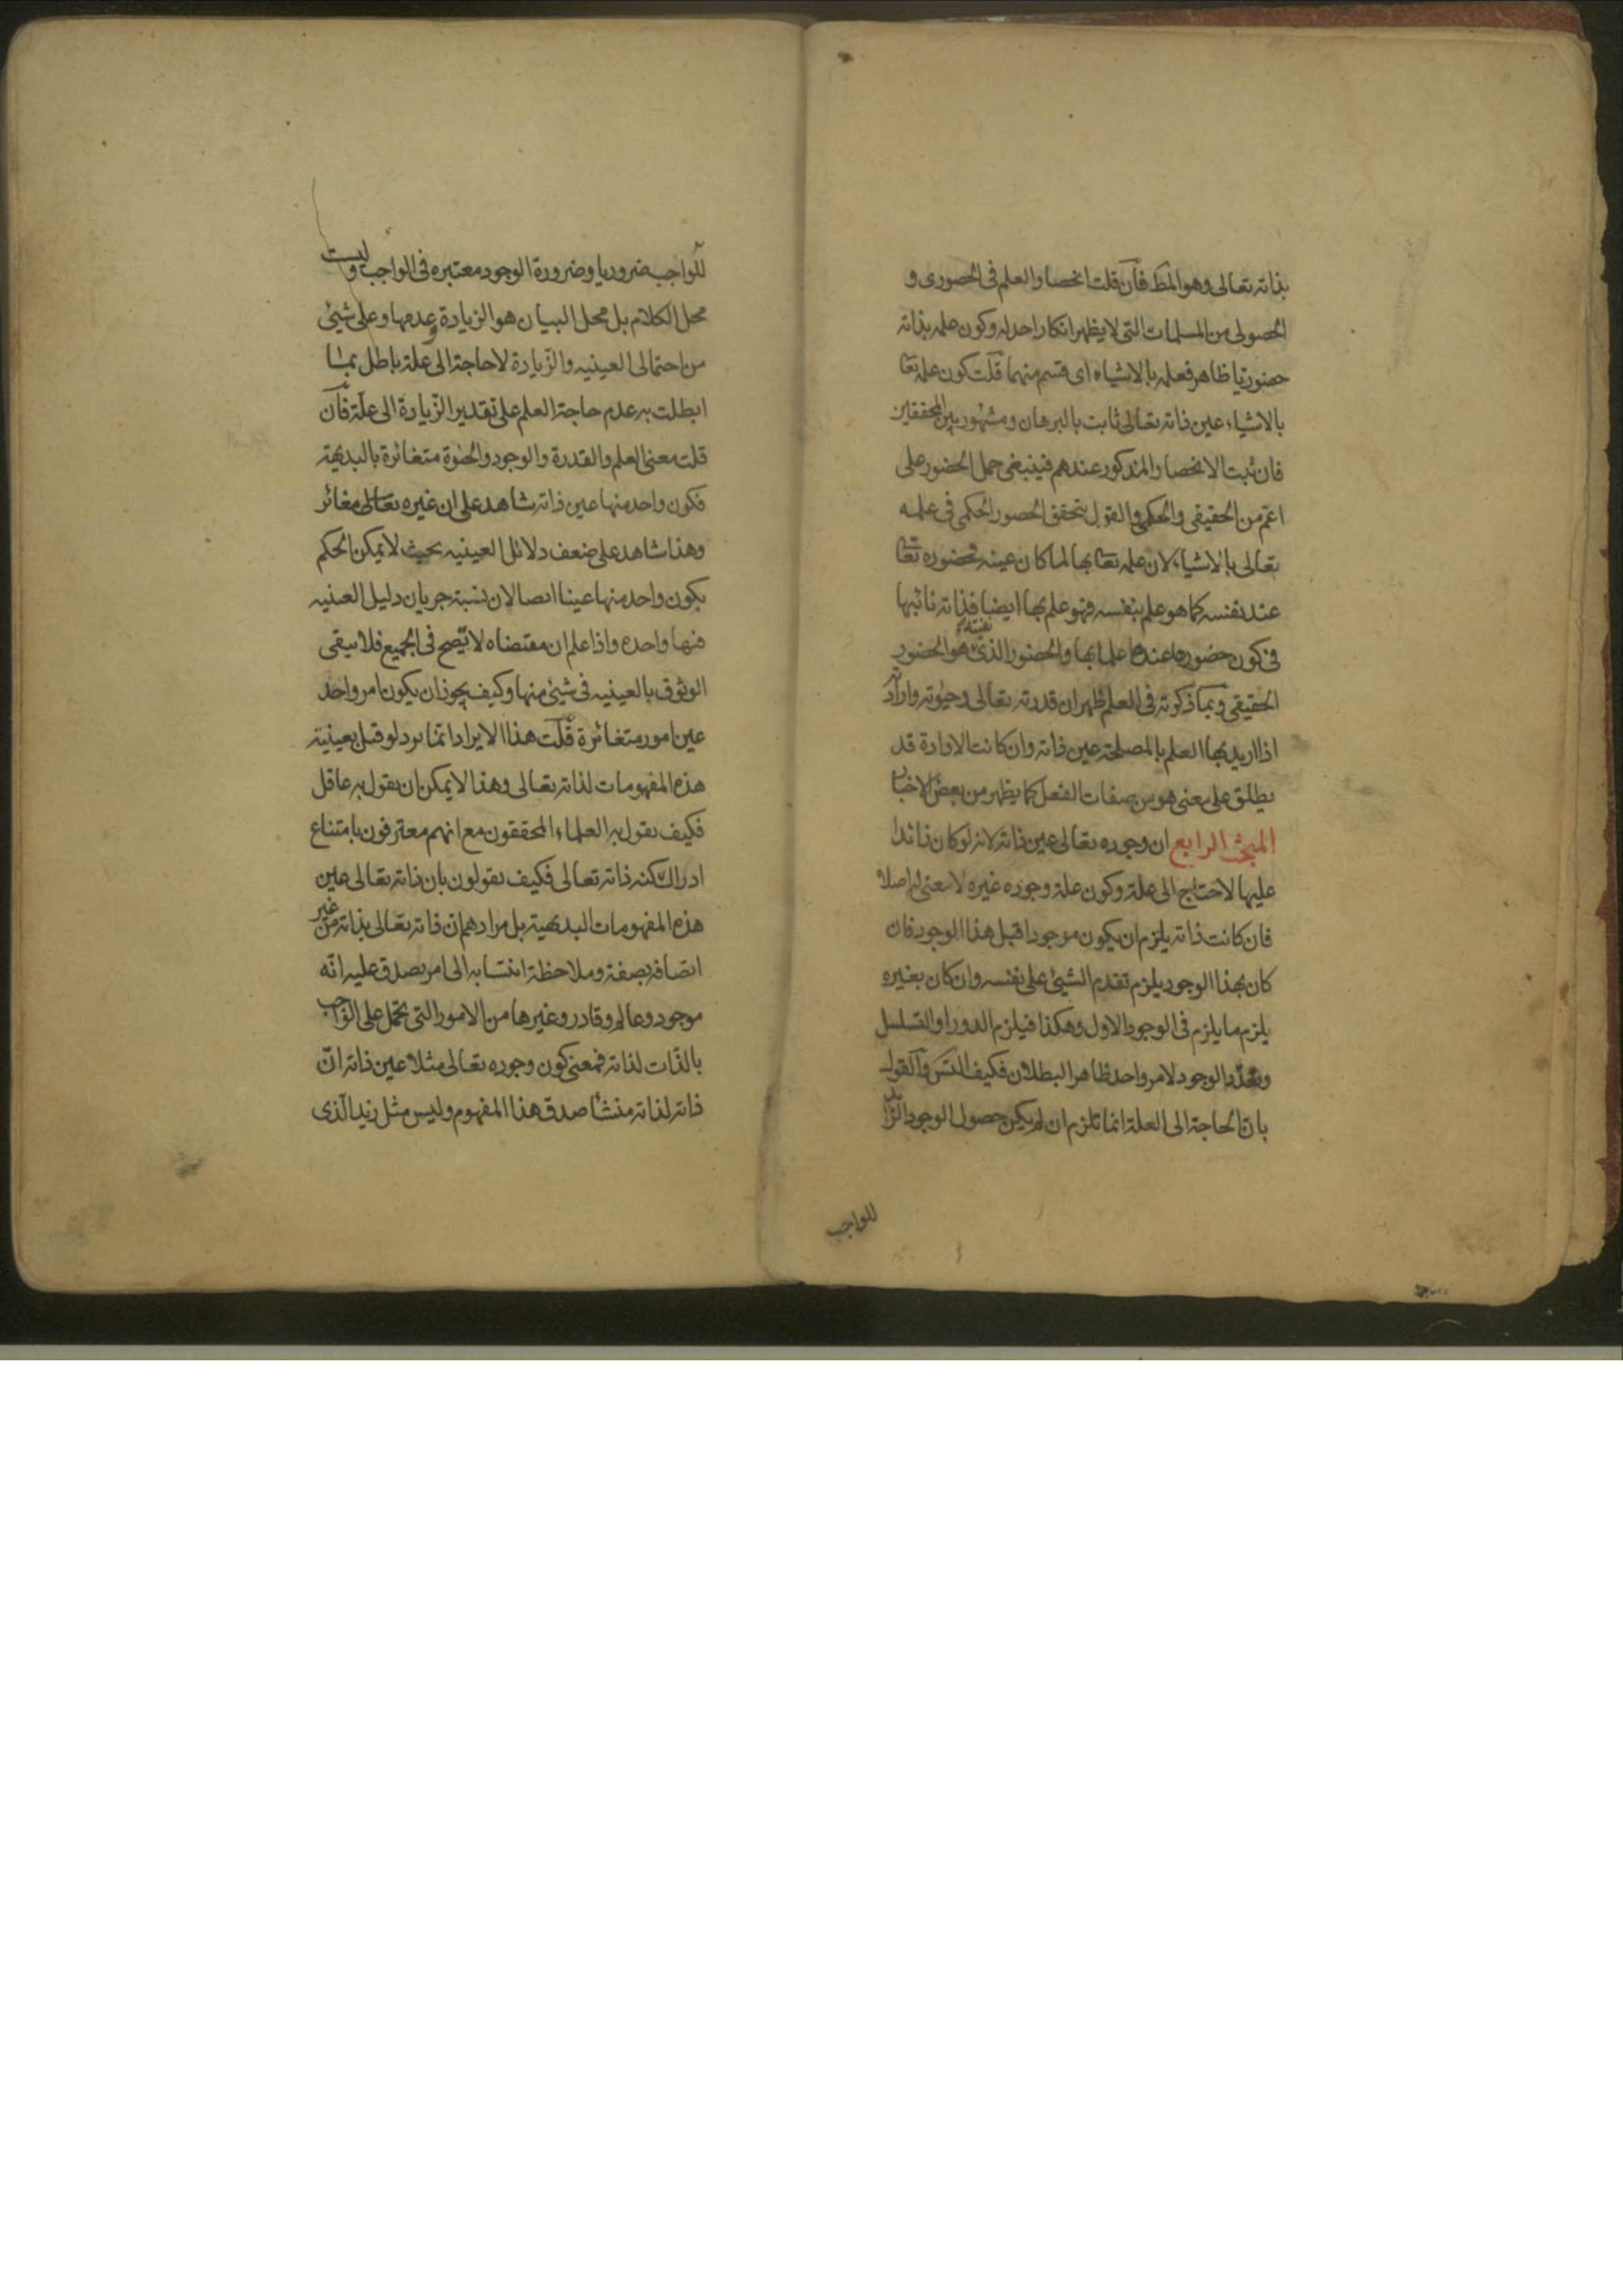 بذاته تعالى وهو المط فان قلت انحصار العلم فى الحضورى و
الحصولى من المسلمات التى لا يظهر انكار احد له وكون علمه بذاته
حضوريا ظاهر فعلمه بالاشياء اى قسم منهما قلت كون علمه تعا
بالاشياء عين ذاته تعالى ثابت بالبرهان ومشهور بين المحققين
فان ثبت الانحصار المذكور عندهم فينبغى حمل الحضور على
اعم من الحقيقى والحكمى والقول بتحقق الحضور الحكمى فى علمه
تعالى بالاشياء لان علمه تعا بها لما كان عينه فحضوره تعا
عند نفسه كما هو علم بنفسه فهو علم بها ايضا فذاته نائبها
فى كون حضورها عنده علما بها والحضور الذى هو الحضور
الحقيقى وبما ذكرته فى العلم ظهر ان قدرته تعالى وحيوته وارادته
اذا اريد بها العلم بالمصلحة عين ذاته وان كانت الارادة قد
يطلق على معنى هو من صفات الفعل كما يظهر من بعض الاخبار
المبحث الرابع ان وجوده تعالى عين ذاته لانه لو كان زائدا
عليها لاحتاج الى علة وكون علة وجوده غيره لا معنى له اصلا
فان كانت ذاته يلزم ان يكون موجودا قبل هذا الوجود فان
كان بهذا الوجود يلزم تقدم الشيئ على نفسه وان كان بغيره
يلزم ما يلزم فى الوجود الاول وهكذا فيلزم الدور او التسلسل
وتعدد الوجود لامر واحد ظاهر البطلان فكيف التس والقول
بان الحاجة الى العلة انما تلزم ان لم يكن حصول الوجود الزائد
للواجب
للواجب ضروريا وضرورة الوجود معتبره فى الواجب وليست
محل الكلام بل محل البيان هو الزيادة وعدمها وعلى شيئ
من احتمالى العينيه والزيادة لا حاجة الى علة باطل بمثل ما
ابطلت به عدم حاجة العلم على تقدير الزيادة الى علة فان
قلت معنى العلم والقدرة والوجود والحيوة متغائرة بالبديهة
فكون واحد منها عين ذاته شاهد على ان غيره تعالى مغائر
وهذا شاهد على ضعف دلائل العينيه بحيث لا يمكن الحكم
بكون واحد منها عينا ايضا لان نسبة جريان دليل العينيه
فيها واحده واذا علم ان مقتضاه لا يصح فى الجميع فلا يبقى
الوثوق بالعينيه فى شيئ منها وكيف يجوز ان يكون امر واحد
عين امور متغائرة قلت هذا الايراد انما يرد لو قيل بعينية
هذه المفهومات لذاته تعالى وهذا لا يمكن ان يقول به عاقل
فكيف يقول به العلماء المحققون مع انهم معترفون بامتناع
ادراك كنه ذاته تعالى فكيف يقولون بان ذاته تعالى عين
هذه المفهومات البديهية بل مرادهم ان ذاته تعالى بذاته من غير
اتصافه بصفة وملاحظة انتسابه الى امر يصدق عليه انه
موجود وعالم وقادر وغيرها من الامور التى تحمل على الواجب
بالذات لذاته فمعنى كون وجوده تعالى مثلا عين ذاته ان
ذاته لذاته منشأ صدق هذا المفهوم وليس مثل زيد الذى